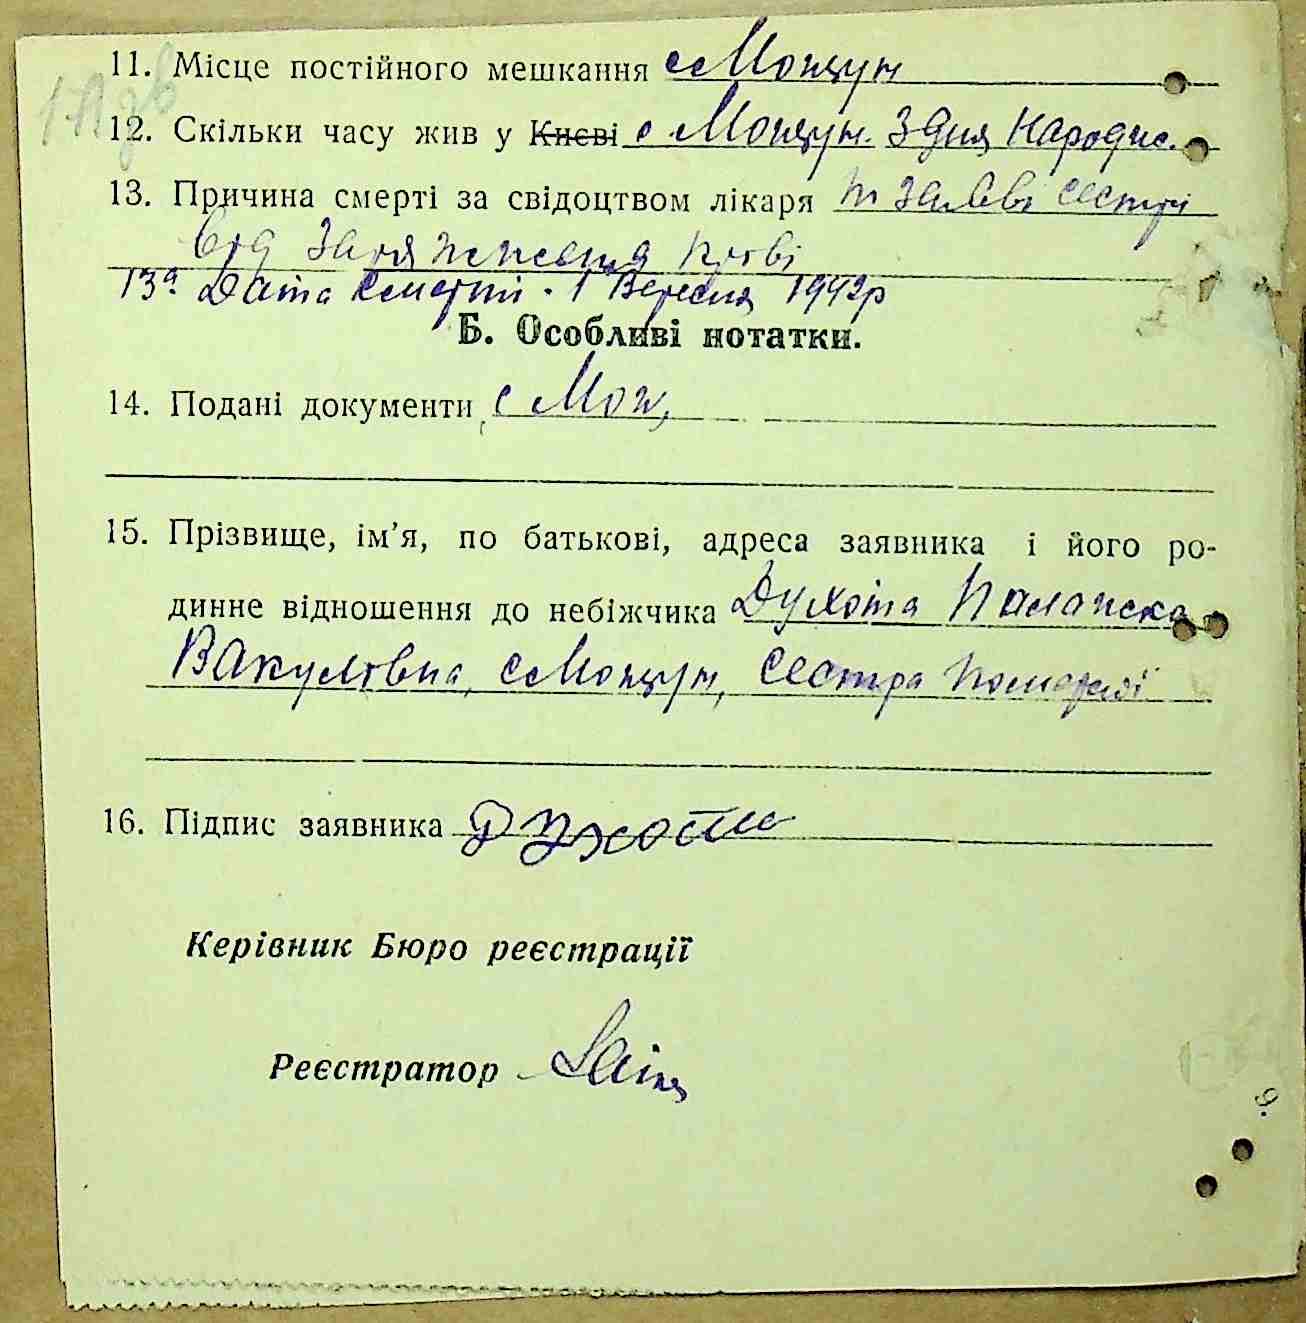 11. Місце постійного мешкання с Мощун
12. Скільки часу жив у Києві с Мощун. З дня народж.
13. Причина смерті за свідоцтвом лікаря по заяві сестри
від зараження крові
13а Дата смерті. 1 Вересня 1942р
Б. Особливі нотатки.
14. Подані документи с Мощ,
15. Прізвище, ім’я, по батькові, адреса заявника і його ро-
динне відношення до небіжчика Духота Палажка
Вакуловна, с Мощун, сестра померлої
16. Підпис заявника Духота
Керівник Бюро реєстрації
Реєстратор